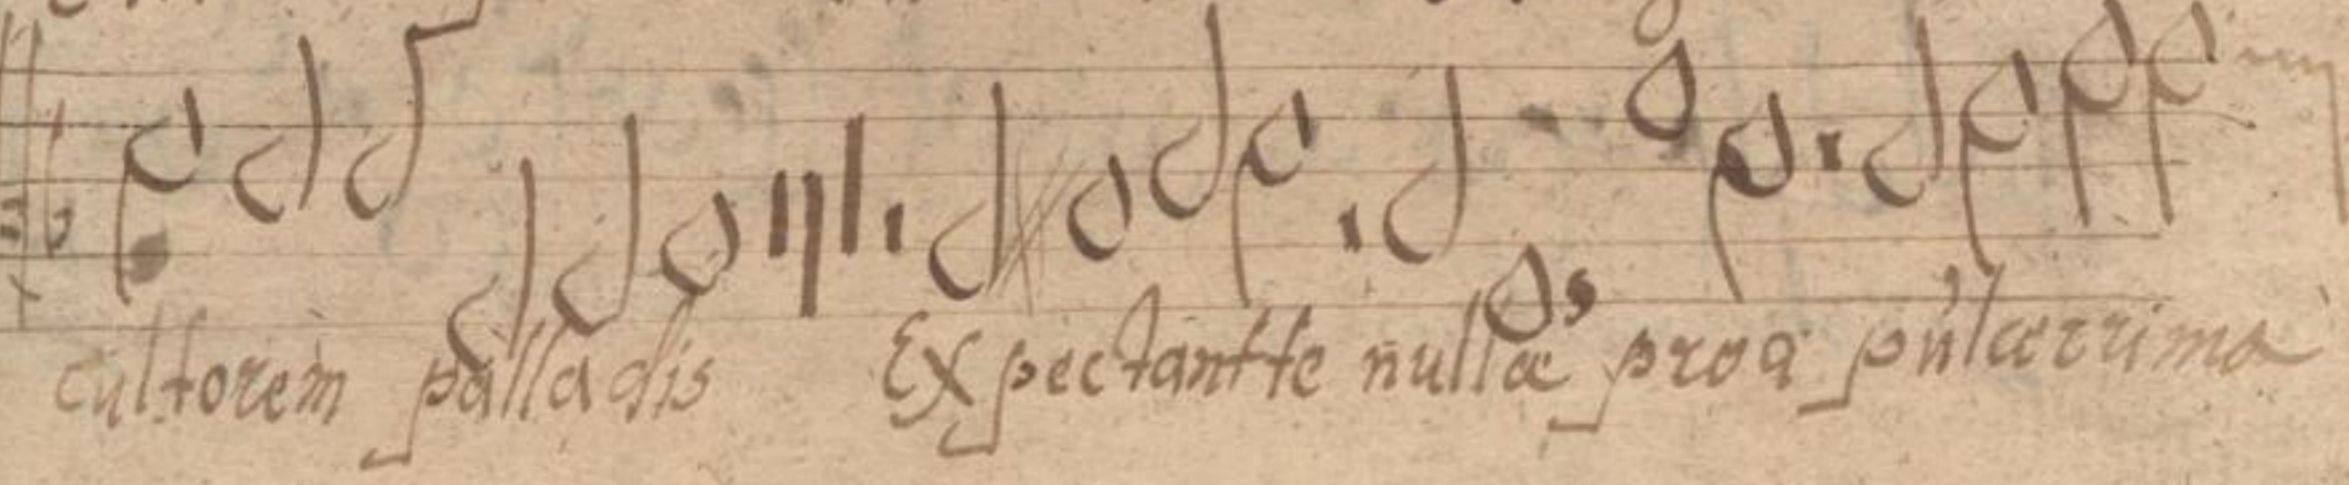 cultorem palladis Expectantte nullæ proq pulcærrima